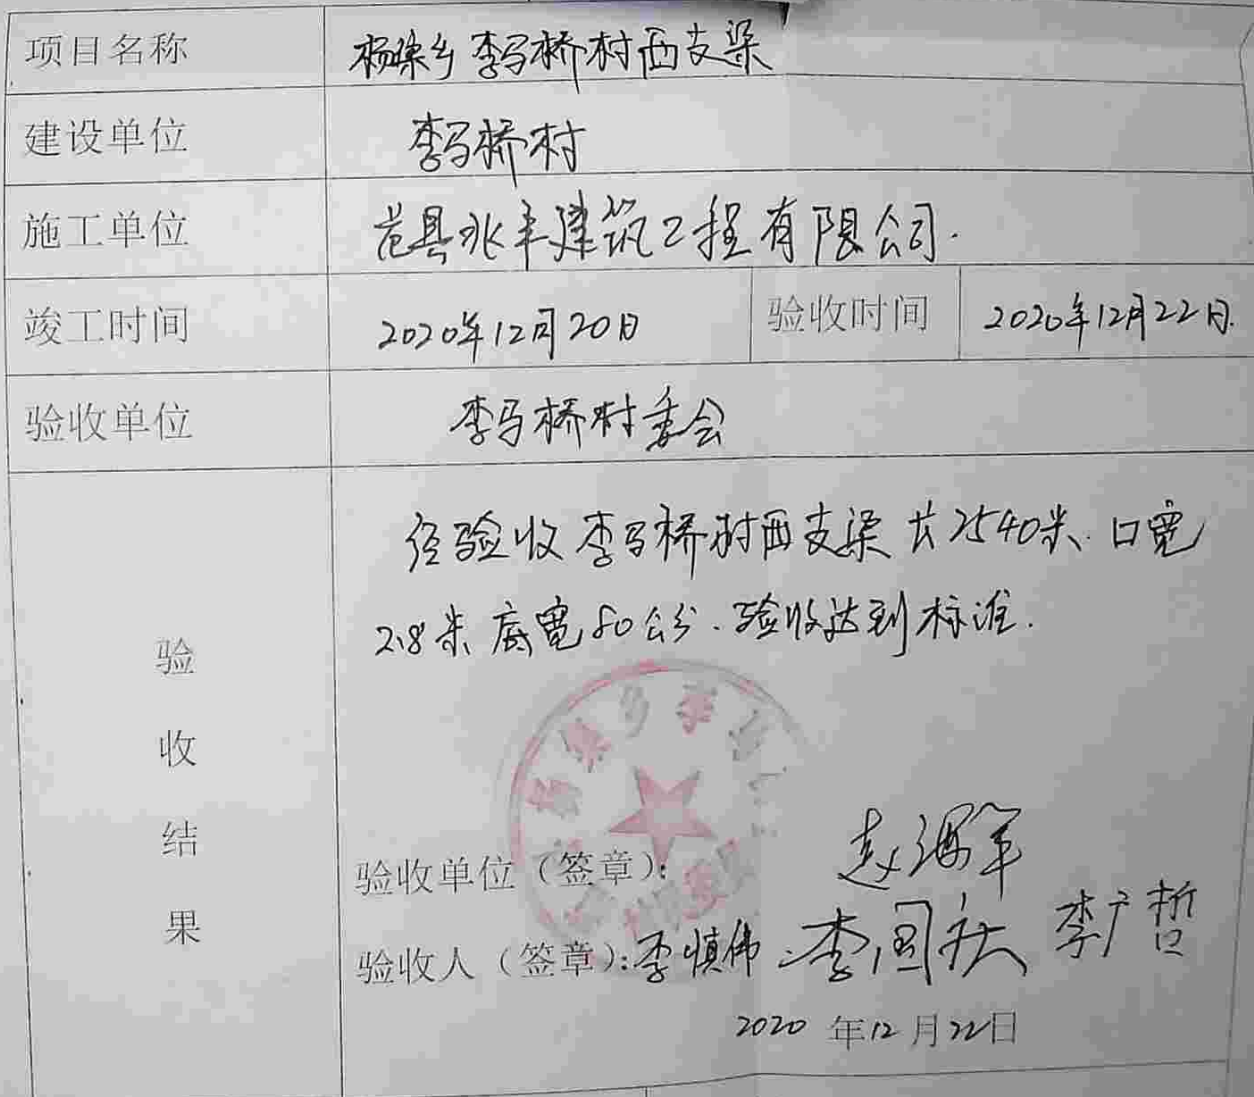 项目名称 杨集乡李马桥村西支渠
建设单位 李马桥村
施工单位 范县兆丰建筑工程有限公司.
竣工时间 2020年12月20日 验收时间 2020年12月22日.
验收单位 李马桥村委会
经验收李马桥村西支渠长2540米、口宽
2.8米底宽80公分.验收达到标准.
验
收
结
果
验收单位（签章）: 赵海军
验收人（签章）:李慎伟 李国庆 李广哲
2020年12月22日